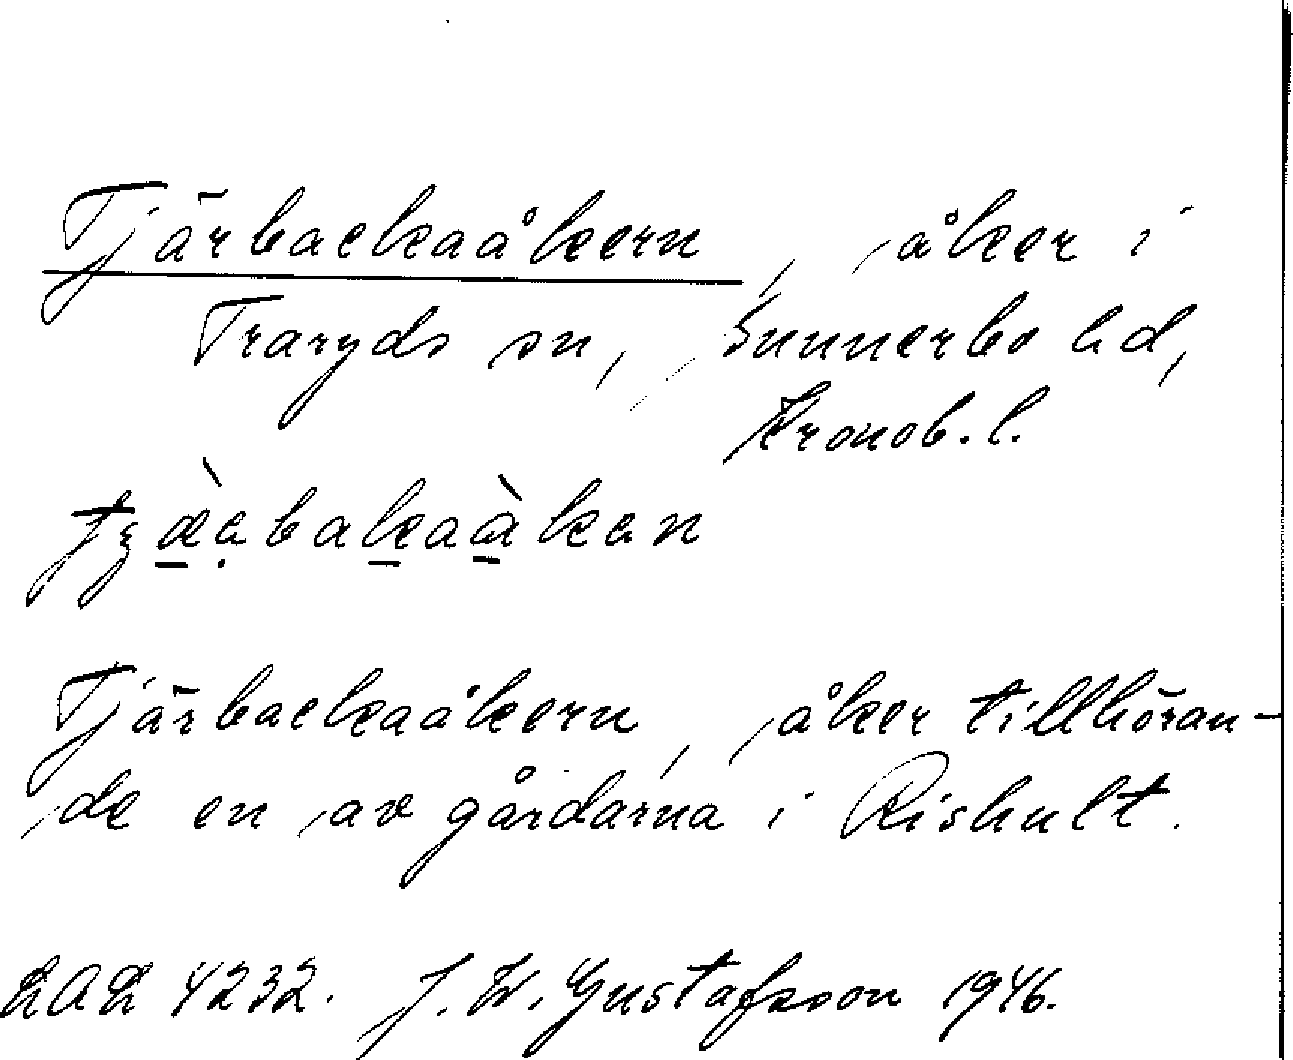 Tjärbackaåkern, åker i
Traryds sn, Sunnerbo hd,
Kronob. l.
Tjärbackaåkern, åker tillhöran-
de en av gårdarna i Rishult.
LAL 4232. J. W. Gustafsson 1946.